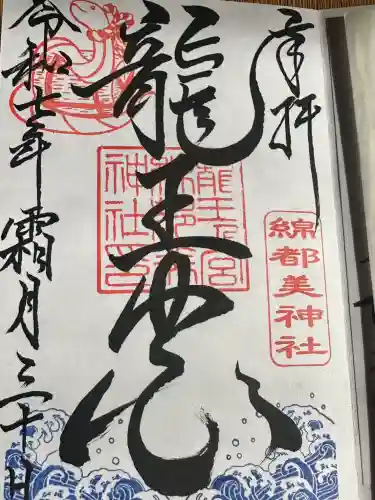 奉拝
綿都美神社
龍王宮
龍王宮
綿都美
神社印
令和七年霜月三十日